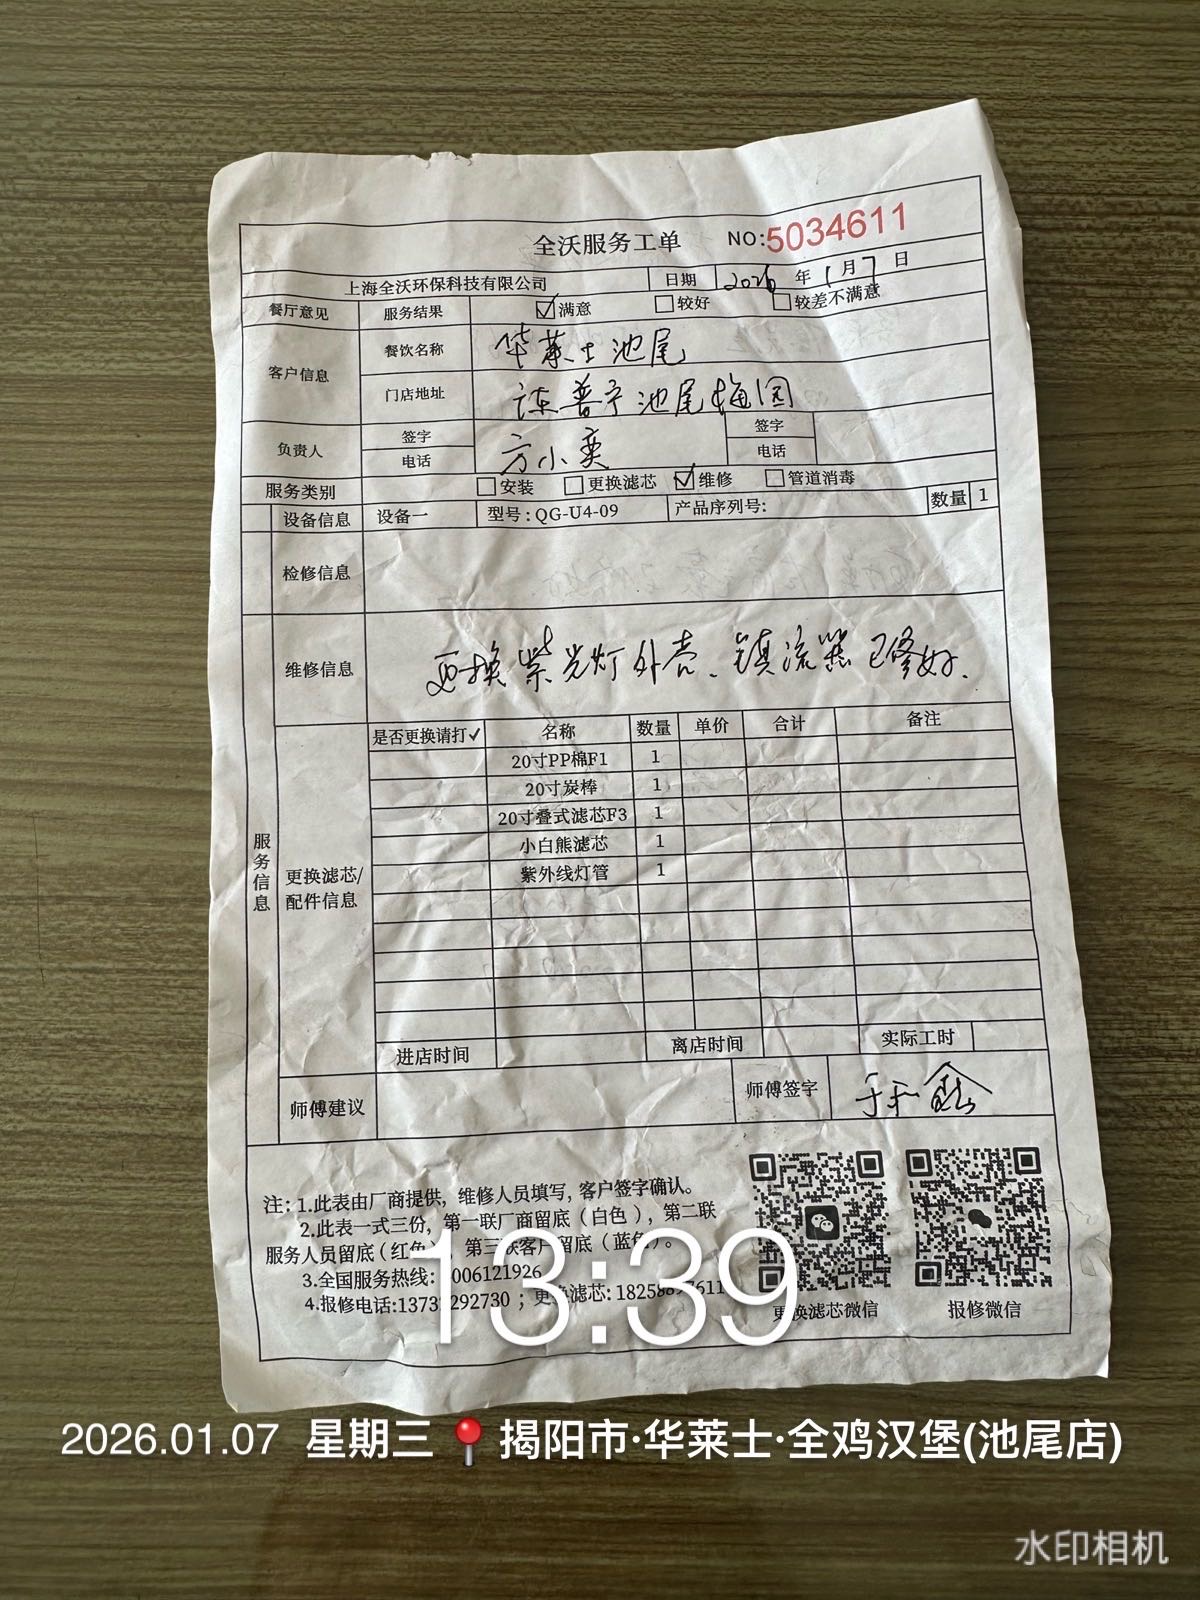 全沃服务工单 NO:5034611
上海全沃环保科技有限公司 日期 2026 年 1 月 7 日
餐厅意见 服务结果 ☑满意 □较好 □较差不满意
客户信息 餐饮名称 华莱士池尾
门店地址 普宁池尾梅园
负责人 签字 方小 签字
电话 电话
服务类别 □安装 □更换滤芯 ☑维修 □管道消毒
设备信息 设备一 型号:QG-U4-09 产品序列号: 数量 1
检修信息
维修信息 更换紫光灯外壳、镇流器已修好.
服务信息
更换滤芯/
配件信息
是否更换请打✓ 名称 数量 单价 合计 备注
20寸PP棉F1 1
20寸炭棒 1
20寸叠式滤芯F3 1
小白熊滤芯 1
紫外线灯管 1
进店时间 离店时间 实际工时
师傅建议 师傅签字
注: 1.此表由厂商提供，维修人员填写，客户签字确认。
2.此表一式三份，第一联厂商留底（白色），第二联
服务人员留底（红色），第三联客户留底（蓝色）。
3.全国服务热线: 006121926
4.报修电话:1373 292730；更换滤芯:18258
更换滤芯微信 报修微信
13:39
2026.01.07 星期三 揭阳市·华莱士·全鸡汉堡(池尾店)
水印相机